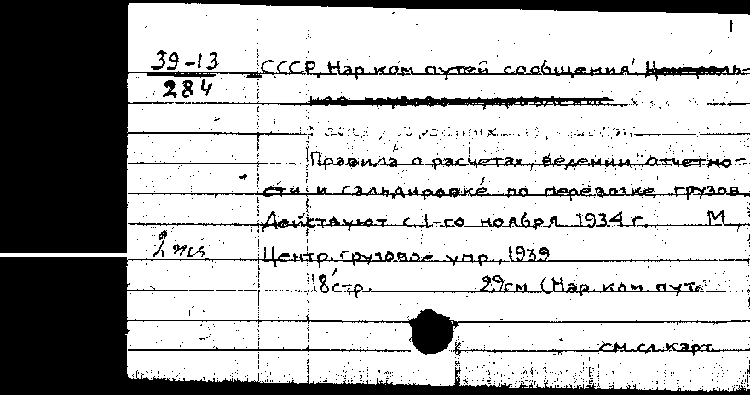 1
39-13
284
СССР, Нар.ком путей сообщения. Централь-
ное грузовое управление
Правила о расчетах, ведении отчетно-
сти и сальдировке по перевозке грузов.
Действуют с 1-го ноября 1934 г. М.,
2 экз
Центр. грузовое упр., 1939
18 стр. 29см (Нар. ком. пут.
см. сл. карт.